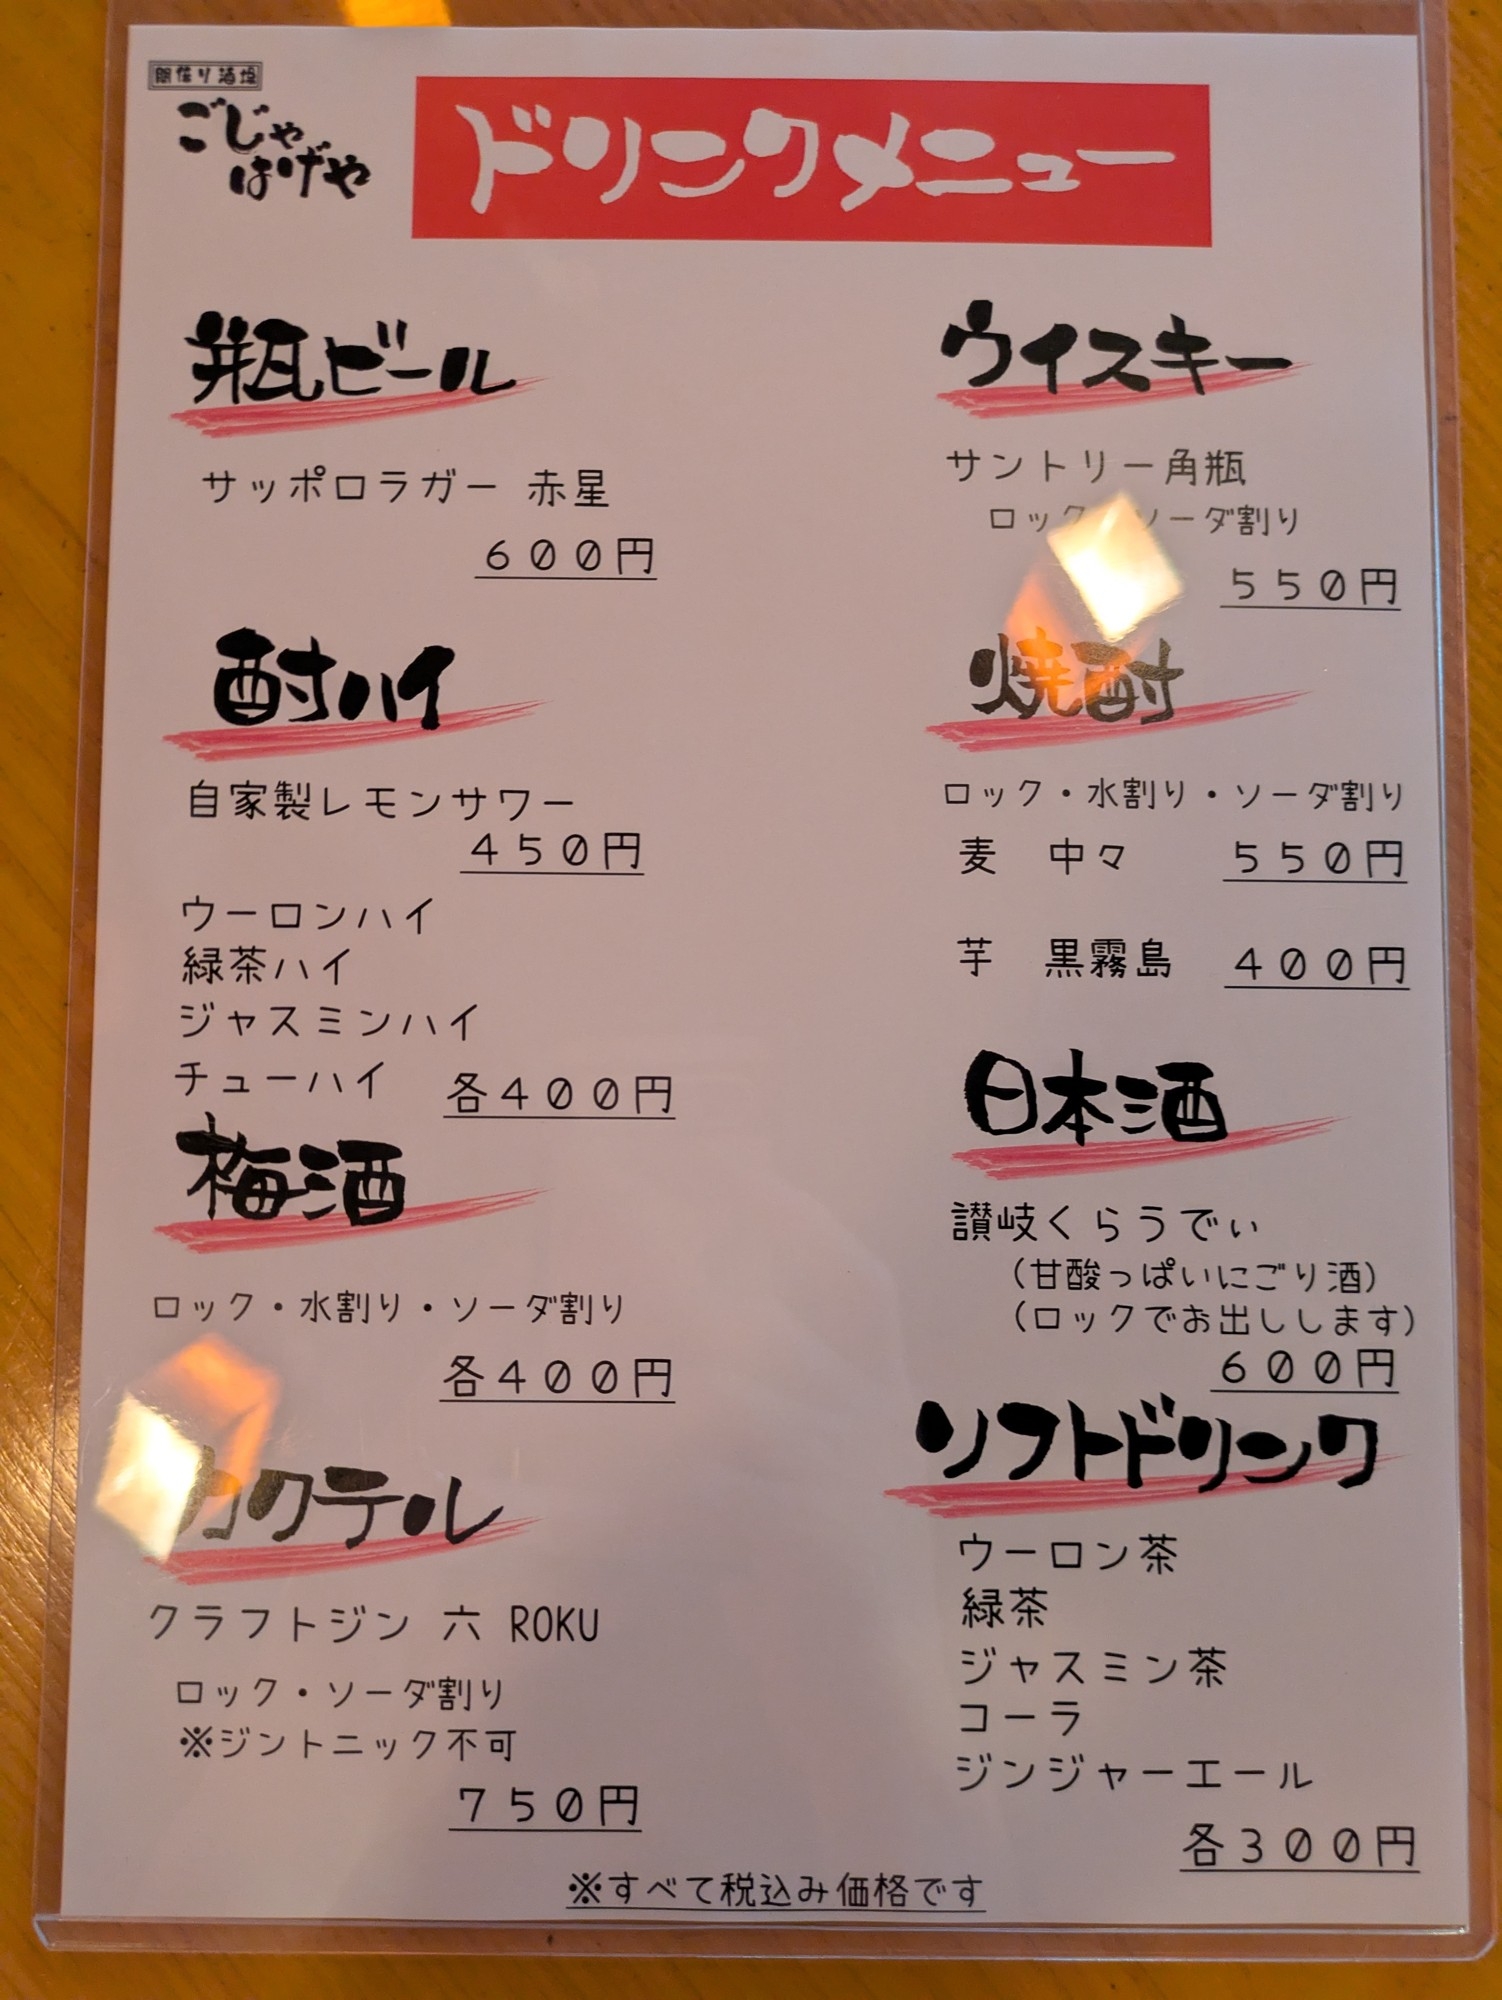 間借り酒場
ごじゃ
はげや
ドリンクメニュー
瓶ビール
サッポロラガー 赤星
600円
酎ハイ
自家製レモンサワー
450円
ウーロンハイ
緑茶ハイ
ジャスミンハイ
チューハイ 各400円
梅酒
ロック・水割り・ソーダ割り
各400円
カクテル
クラフトジン 六 ROKU
ロック・ソーダ割り
※ジントニック不可
750円
ウイスキー
サントリー角瓶
ロック・ソーダ割り
550円
焼酎
ロック・水割り・ソーダ割り
麦 中々 550円
芋 黒霧島 400円
日本酒
讃岐くらうでぃ
（甘酸っぱいにごり酒）
（ロックでお出しします）
600円
ソフトドリンク
ウーロン茶
緑茶
ジャスミン茶
コーラ
ジンジャーエール
各300円
※すべて税込み価格です